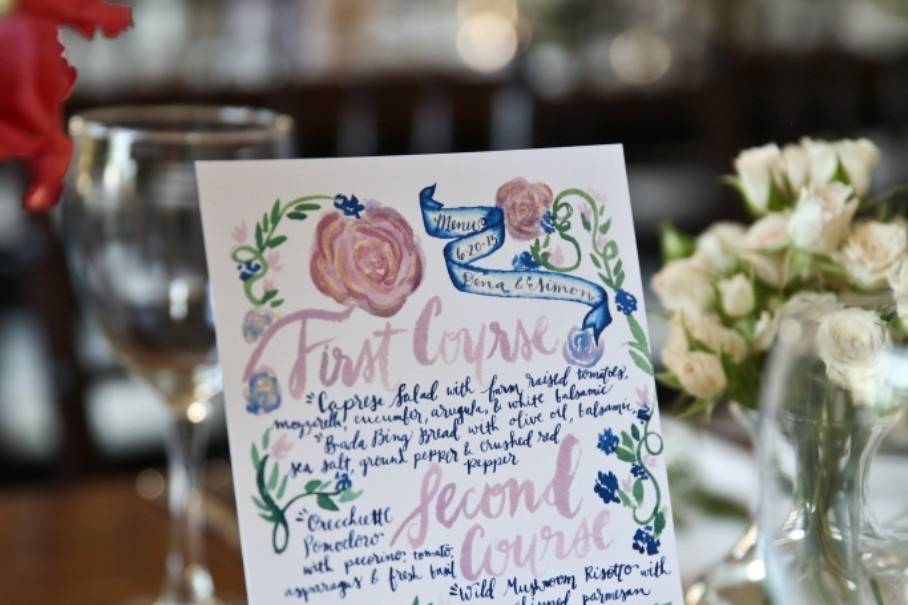 Menu
6-20-15
Dena & Simon
First Course
Caprese Salad with farm raised tomatoes,
mozzarella, cucumber, arugula, & white balsamic
Bada Bing Bread with olive oil, balsamic,
sea salt, ground pepper & crushed red
pepper
Second
Course
Orecchiette
Pomodoro
with pecorino, tomato,
asparagus & fresh basil
Wild Mushroom Risotto with
parmesan